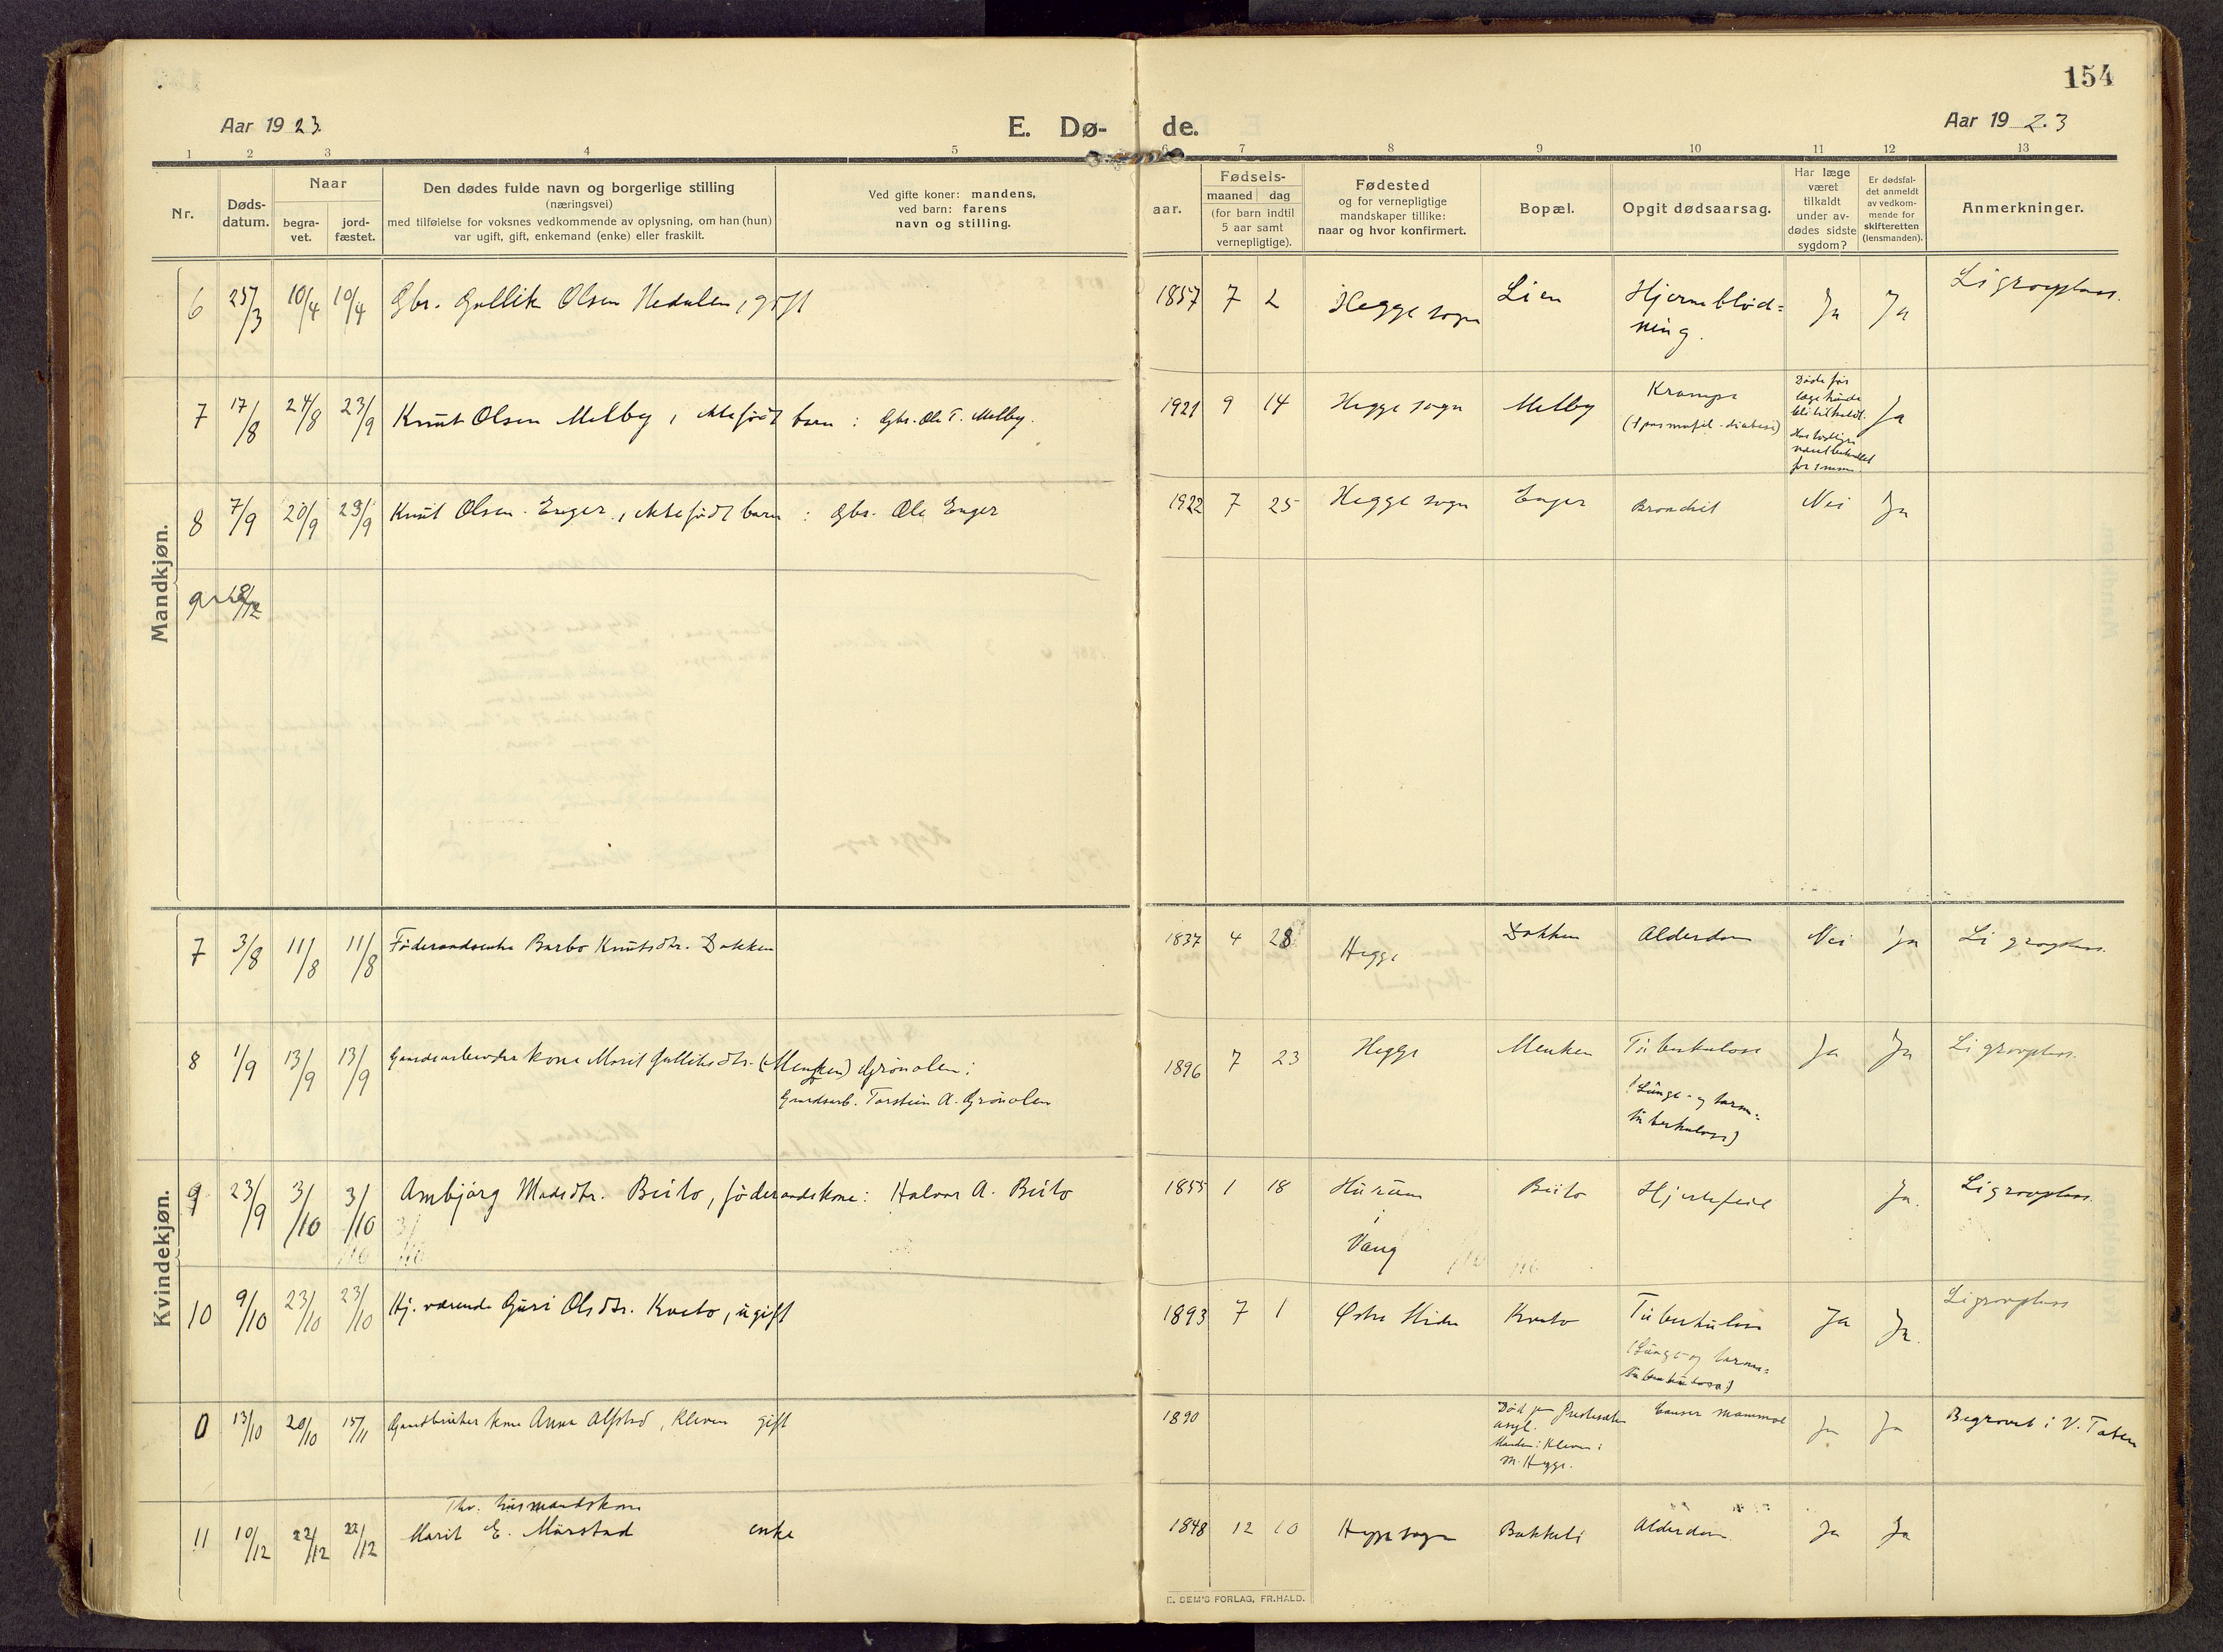 154
Aar 1923.
E. Dø-
de.
Aar 1923
1 2 3 4 5 6 7 8 9 10 11 12 13
Nr.
Døds-
datum.
Naar
begra-
vet.
jord-
fæstet.
Den dødes fulde navn og borgerlige stilling
(næringsvei)
med tilføielse for voksnes vedkommende av oplysning, om han (hun)
var ugift, gift, enkemand (enke) eller fraskilt.
Ved gifte koner: mandens,
ved barn: farens
navn og stilling.
aar.
Fødsels-
maaned dag
(for barn indtil
5 aar samt
vernepligtige).
Fødested
og for vernepligtige
mandskaper tillike:
naar og hvor konfirmert.
Bopæl.
Opgit dødsaarsag.
Har læge
været
tilkaldt
under av-
dødes sidste
sygdom?
Er dødsfal-
det anmeldt
av vedkom-
mende for
skifteretten
(lensmanden).
Anmerkninger.
Mandkjøn.
6 25/3 10/4 10/4 Gbr. Gullik Olsen Hedalen, gift 1857 7 2 Hegge sogn Lien Hjerneblød-
ning. Ja Ja Ligravplass.
7 17/8 24/8 23/9 Knut Olsen Melby, ektefødt barn : Gbr. Ole T. Melby. 1921 9 14 Hegge sogn Melby Krampe
Ja
Døde før
læge kunde
bli tilkaldt.
8 7/9 20/9 23/9 Knut Olsen Enger, ektefødt barn : Gbr. Ole Enger 1922 7 25 Hegge sogn Enger Bronchit Nei Ja
9 18/12
Kvindekjøn.
7 3/8 11/8 11/8 Føderaadsenke Barbo Knutsdtr. Dokken 1837 4 28 Hegge Dokken Alderdom Nei Ja Ligravplass.
8 1/9 13/9 13/9 Gaardsarbeider kone Marit Gulliksdtr. (Menken) Grønolen :
Gaardsarb. Torstein A. Grønolen
1896 7 23 Hegge Menken Tuberkulose Ja Ja Ligravplass.
(Lunge- og tarm-
tuberkulose)
9 23/9 3/10 3/10 Ambjørg Madsdtr. Beito, føderaadskone : Halvor A. Beito 1855 1 18 Hurum
i
Vang
Beito Hjertefeil Ja. Ligravplass.
10 9/10 23/10 23/10 Hj. værende Guri Olsdtr. Kveto, ugift 1893 7 1 Østre Slidre Kveto Tuberkulose Ja Ja. Ligravplass
(Lunge- og tarm-
tuberkulose)
0 13/10 20/10 15/11 Gaardbruker kone Anna Alfstad, Kleven gift 1890
Død paa
asyl.
Manden : Kleven i
M. Hegge.
Cancer mammae Ja Ja Begravet i V. Toten
11 10/12 22/12 22/12 Fhv. husmandskone
Marit E. Mørstad enke 1848 12 10 Hegge sogn Bakkeli Alderdom. Ja Ja
E. SEM'S FORLAG, FR.HALD.